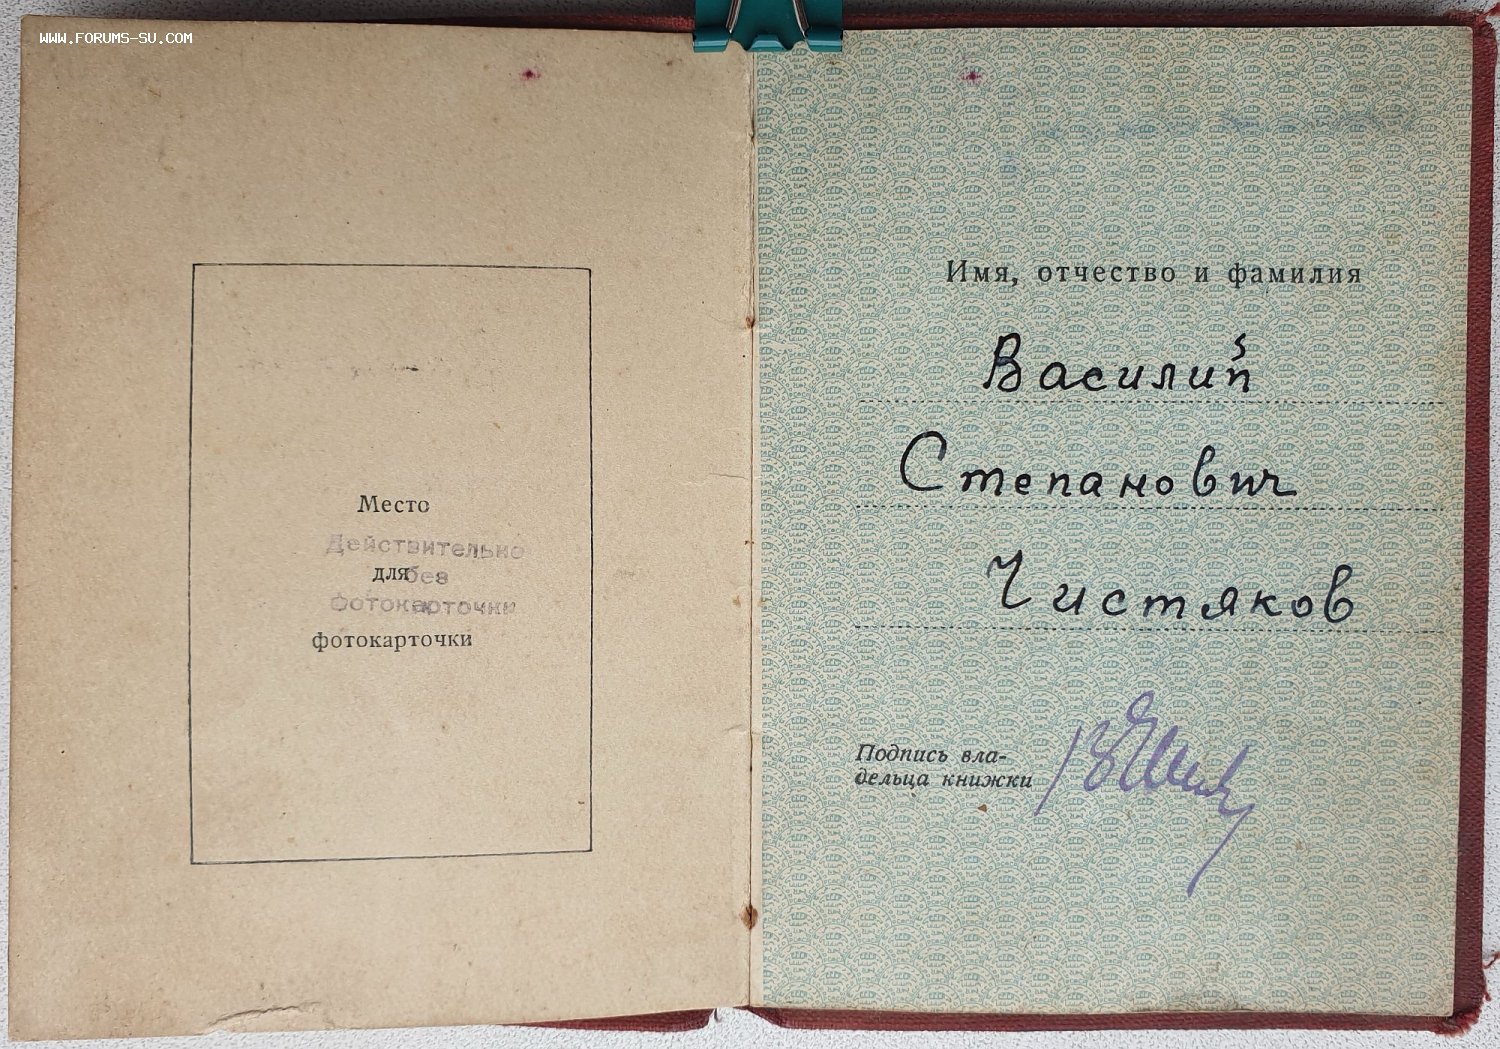 WWW.FORUMS-SU.COM
Место
Действительно
для
без
фотокарточки
фотокарточки
Имя, отчество и фамилия
Василий
Степанович
Чистяков
Подпись вла-
дельца книжки